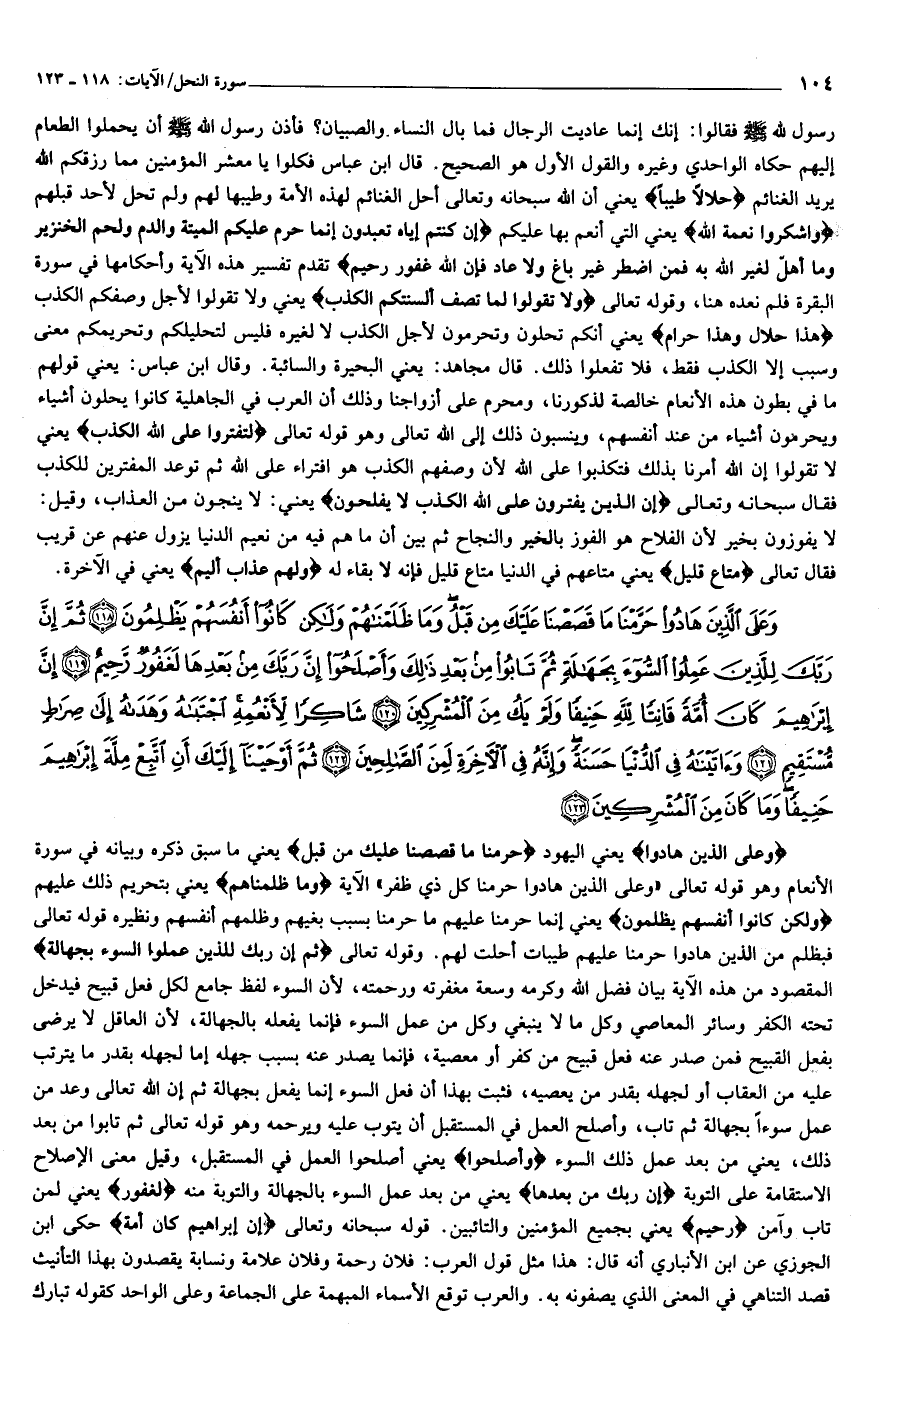 ١٠٤ سورة النحل/ الآيات: ١١٨ ـ ١٢٣
رسول لله ﷺ فقالوا: إنك إنما عاديت الرجال فما بال النساء والصبيان؟ فأذن رسول الله ﷺ أن يحملوا الطعام
إليهم حكاه الواحدي وغيره والقول الأول هو الصحيح. قال ابن عباس فكلوا يا معشر المؤمنين مما رزقكم الله
يريد الغنائم ﴿حلالاً طيباً﴾ يعني أن الله سبحانه وتعالى أحل الغنائم لهذه الأمة وطيبها لهم ولم تحل لأحد قبلهم
﴿واشكروا نعمة الله﴾ يعني التي أنعم بها عليكم ﴿إن كنتم إياه تعبدون إنما حرم عليكم الميتة والدم ولحم الخنزير
وما أهلّ لغير الله به فمن اضطر غير باغ ولا عاد فإن الله غفور رحيم﴾ تقدم تفسير هذه الآية وأحكامها في سورة
البقرة فلم نعده هنا، وقوله تعالى ﴿ولا تقولوا لما تصف ألسنتكم الكذب﴾ يعني ولا تقولوا لأجل وصفكم الكذب
﴿هذا حلال وهذا حرام﴾ يعني أنكم تحلون وتحرمون لأجل الكذب لا لغيره فليس لتحليلكم وتحريمكم معنى
وسبب إلا الكذب فقط، فلا تفعلوا ذلك. قال مجاهد: يعني البحيرة والسائبة. وقال ابن عباس: يعني قولهم
ما في بطون هذه الأنعام خالصة لذكورنا، ومحرم على أزواجنا وذلك أن العرب في الجاهلية كانوا يحلون أشياء
ويحرمون أشياء من عند أنفسهم، وينسبون ذلك إلى الله تعالى وهو قوله تعالى ﴿لتفتروا على الله الكذب﴾ يعني
لا تقولوا إن الله أمرنا بذلك فتكذبوا على الله لأن وصفهم الكذب هو افتراء على الله ثم توعد المفترين للكذب
فقال سبحانه وتعالى ﴿إن الذين يفترون على الله الكذب لا يفلحون﴾ يعني: لا ينجون من العذاب، وقيل:
لا يفوزون بخير لأن الفلاح هو الفوز بالخير والنجاح ثم بين أن ما هم فيه من نعيم الدنيا يزول عنهم عن قريب
فقال تعالى ﴿متاع قليل﴾ يعني متاعهم في الدنيا متاع قليل فإنه لا بقاء له ﴿ولهم عذاب أليم﴾ يعني في الآخرة.
وَعَلَى ٱلَّذِينَ هَادُوا۟ حَرَّمْنَا مَا قَصَصْنَا عَلَيْكَ مِن قَبْلُ ۖ وَمَا ظَلَمْنَـٰهُمْ وَلَـٰكِن كَانُوٓا۟ أَنفُسَهُمْ يَظْلِمُونَ ﴿١١٨﴾ ثُمَّ إِنَّ
رَبَّكَ لِلَّذِينَ عَمِلُوا۟ ٱلسُّوٓءَ بِجَهَـٰلَةٍ ثُمَّ تَابُوا۟ مِنۢ بَعْدِ ذَٰلِكَ وَأَصْلَحُوٓا۟ إِنَّ رَبَّكَ مِنۢ بَعْدِهَا لَغَفُورٌ رَّحِيمٌ ﴿١١٩﴾ إِنَّ
إِبْرَٰهِيمَ كَانَ أُمَّةً قَانِتًا لِّلَّهِ حَنِيفًا وَلَمْ يَكُ مِنَ ٱلْمُشْرِكِينَ ﴿١٢٠﴾ شَاكِرًا لِّأَنْعُمِهِ ۚ ٱجْتَبَىٰهُ وَهَدَىٰهُ إِلَىٰ صِرَٰطٍ
مُّسْتَقِيمٍ ﴿١٢١﴾ وَءَاتَيْنَـٰهُ فِى ٱلدُّنْيَا حَسَنَةً ۖ وَإِنَّهُۥ فِى ٱلْـَٔاخِرَةِ لَمِنَ ٱلصَّـٰلِحِينَ ﴿١٢٢﴾ ثُمَّ أَوْحَيْنَآ إِلَيْكَ أَنِ ٱتَّبِعْ مِلَّةَ إِبْرَٰهِيمَ
حَنِيفًا ۖ وَمَا كَانَ مِنَ ٱلْمُشْرِكِينَ ﴿١٢٣﴾
﴿وعلى الذين هادوا﴾ يعني اليهود ﴿حرمنا ما قصصنا عليك من قبل﴾ يعني ما سبق ذكره وبيانه في سورة
الأنعام وهو قوله تعالى «وعلى الذين هادوا حرمنا كل ذي ظفر» الآية ﴿وما ظلمناهم﴾ يعني بتحريم ذلك عليهم
﴿ولكن كانوا أنفسهم يظلمون﴾ يعني إنما حرمنا عليهم ما حرمنا بسبب بغيهم وظلمهم أنفسهم ونظيره قوله تعالى
فبظلم من الذين هادوا حرمنا عليهم طيبات أحلت لهم. وقوله تعالى ﴿ثم إن ربك للذين عملوا السوء بجهالة﴾
المقصود من هذه الآية بيان فضل الله وكرمه وسعة مغفرته ورحمته، لأن السوء لفظ جامع لكل فعل قبيح فيدخل
تحته الكفر وسائر المعاصي وكل ما لا ينبغي وكل من عمل السوء فإنما يفعله بالجهالة، لأن العاقل لا يرضى
بفعل القبيح فمن صدر عنه فعل قبيح من كفر أو معصية، فإنما يصدر عنه بسبب جهله إما لجهله بقدر ما يترتب
عليه من العقاب أو لجهله بقدر من يعصيه، فثبت بهذا أن فعل السوء إنما يفعل بجهالة ثم إن الله تعالى وعد من
عمل سوءاً بجهالة ثم تاب، وأصلح العمل في المستقبل أن يتوب عليه ويرحمه وهو قوله تعالى ثم تابوا من بعد
ذلك، يعني من بعد عمل ذلك السوء ﴿وأصلحوا﴾ يعني أصلحوا العمل في المستقبل، وقيل معنى الإصلاح
الاستقامة على التوبة ﴿إن ربك من بعدها﴾ يعني من بعد عمل السوء بالجهالة والتوبة منه ﴿لغفور﴾ يعني لمن
تاب وآمن ﴿رحيم﴾ يعني بجميع المؤمنين والتائبين. قوله سبحانه وتعالى ﴿إن إبراهيم كان أمة﴾ حكى ابن
الجوزي عن ابن الأنباري أنه قال: هذا مثل قول العرب: فلان رحمة وفلان علامة ونسابة يقصدون بهذا التأنيث
قصد التناهي في المعنى الذي يصفونه به. والعرب توقع الأسماء المبهمة على الجماعة وعلى الواحد كقوله تبارك